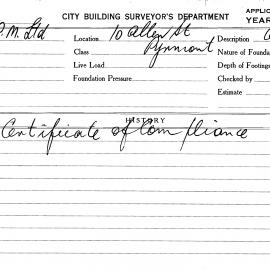 CITY BUILDING SURVEYOR'S DEPARTMENT
APPLIC
YEAR
P.M. Ltd Location 10 Allen St Description
Class Pyrmont Nature of Founda
Live Load Depth of Footings
Foundation Pressure Checked by
Estimate
HISTORY
Certificate of Compliance